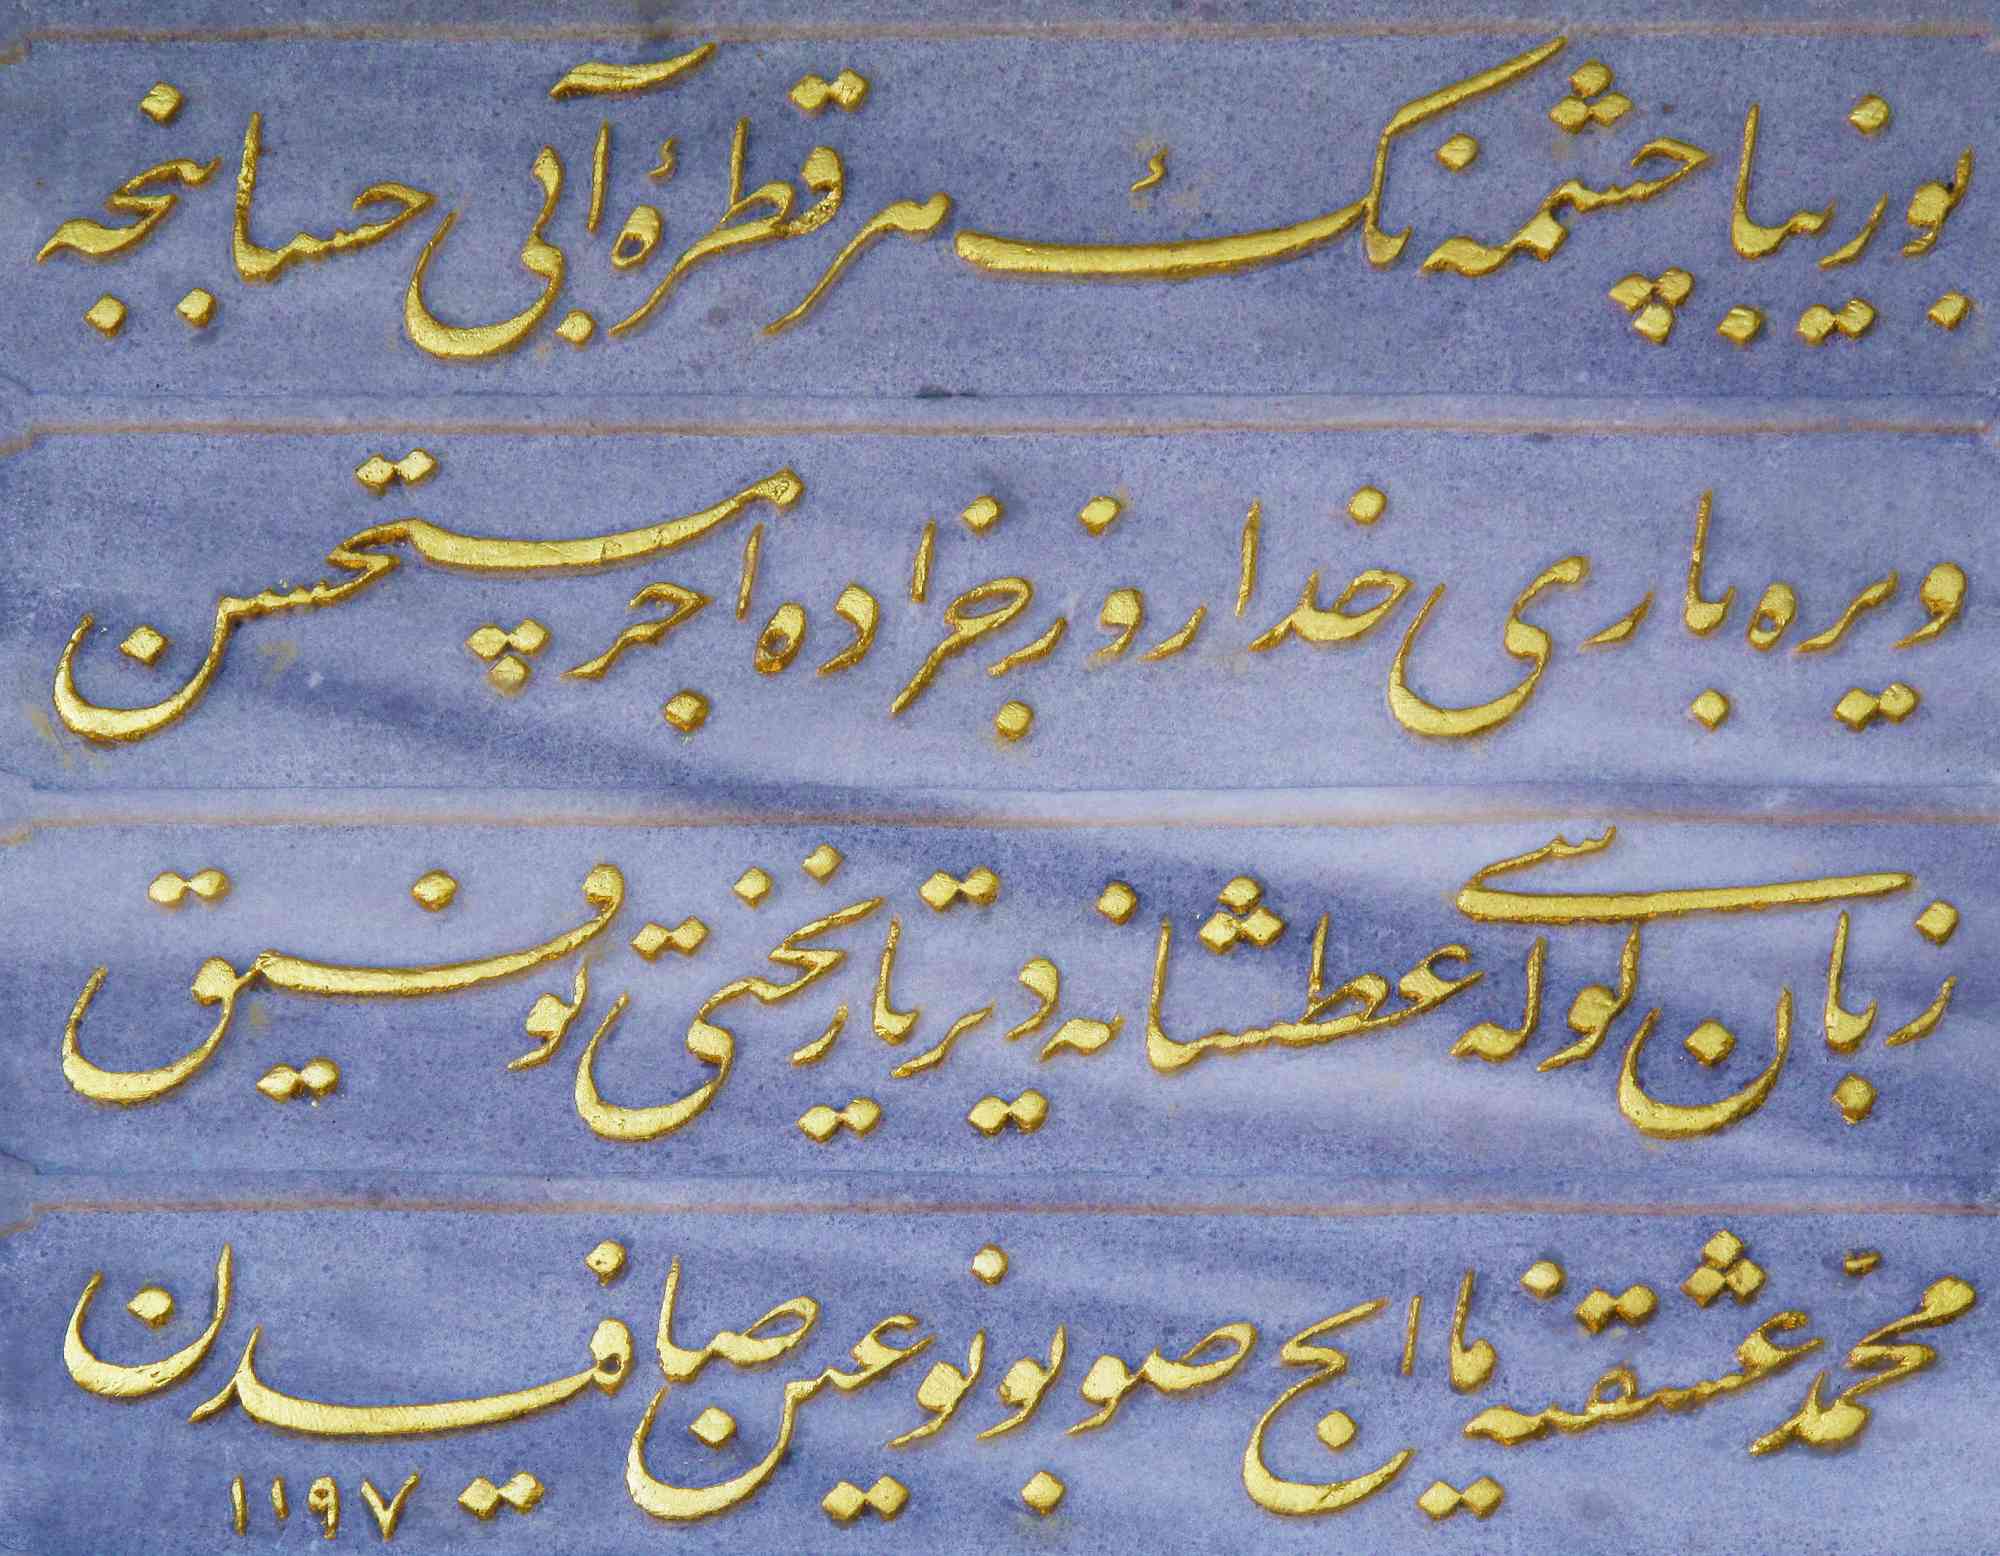 بو زیبا چشمه نڭ هر قطرۀ آبی حسابنجه
ویره باری خدا روز جزاده اجر مستحسن
زبان لوله سی عطشانه دیر تاریخنی توفیق
محمد عشقنه ما ایچ صو بو نو عین صافیدن
١١٩٧